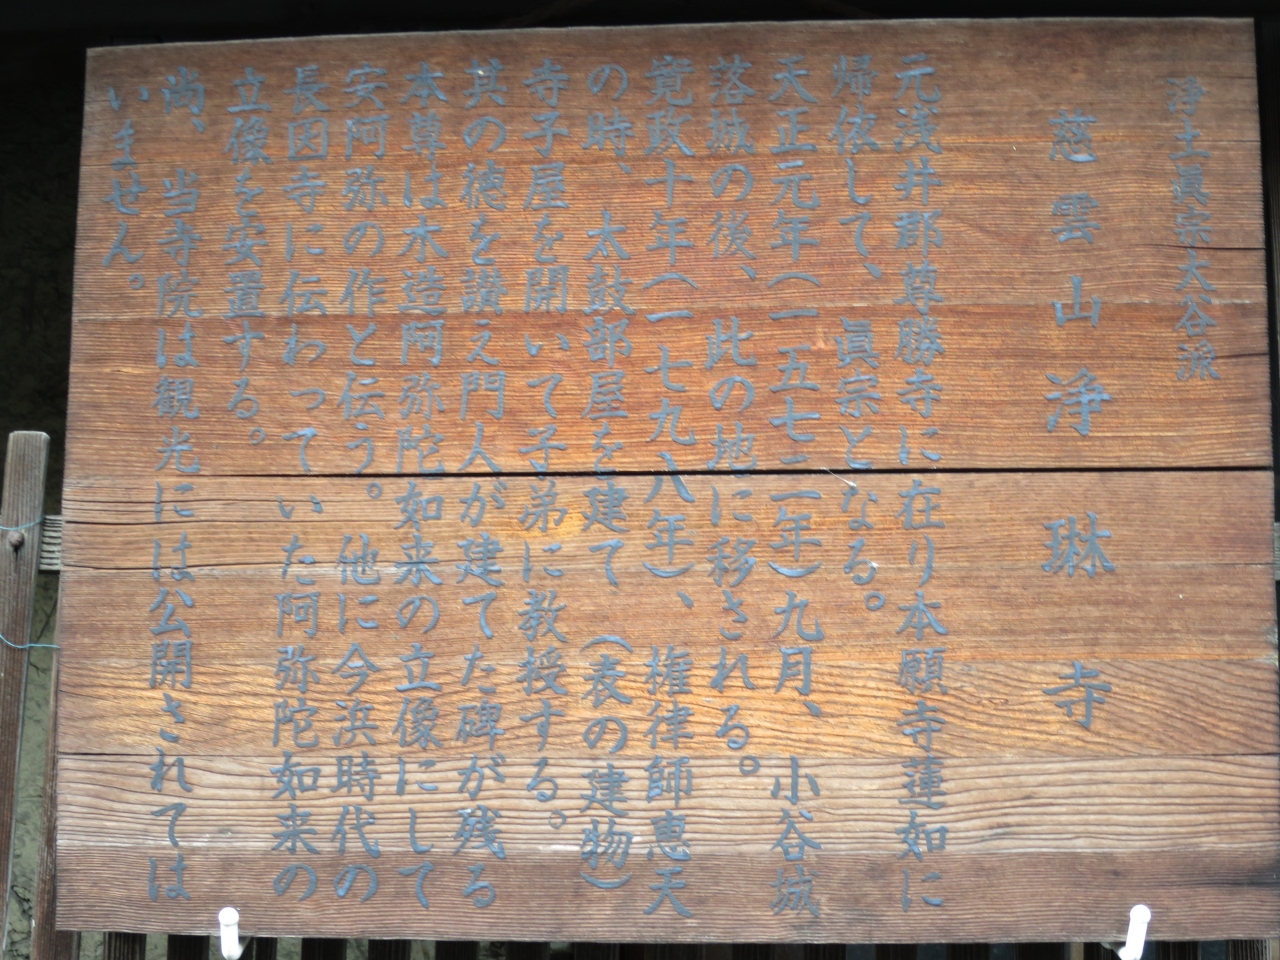 浄土眞宗大谷派
慈雲山浄琳寺
元浅井郡尊勝寺に在り本願寺蓮如に
帰依して、眞宗となる。
天正元年(一五七三年)九月、小谷城
落城の後、此の地に移される。
寛政十年(一七九八年)、権律師恵天
の時、太鼓部屋を建て(表の建物)
寺子屋を開いて子弟に教授する。
其の徳を讃え門人が建てた碑が残る
本尊は木造阿弥陀如来の立像にして
安阿弥の作と伝う。他に今浜時代の
長因寺に伝わっていた阿弥陀如来の
立像を安置する。
尚、当寺院は観光には公開されては
いません。